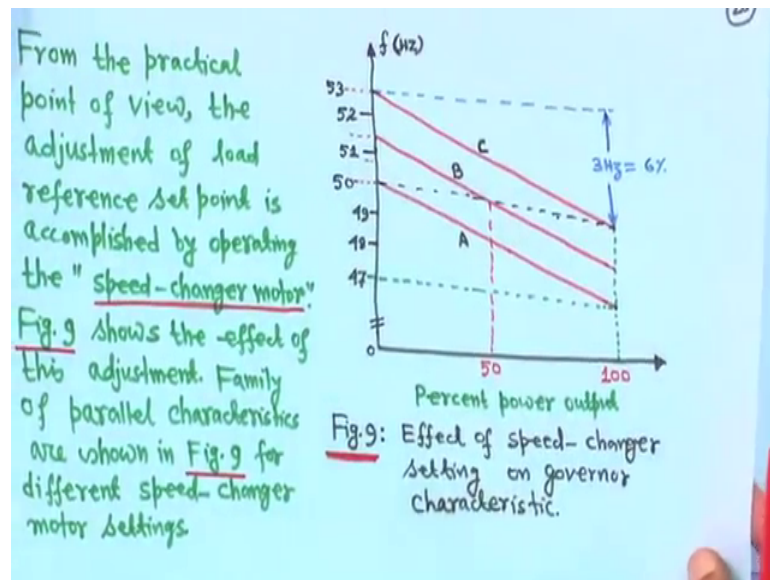 From the practical
point of view, the
adjustment of load
reference set point is
accomplished by operating
the "speed-changer motor".
Fig.9 shows the effect of
this adjustment. Family
of parallel characteristics
are shown in Fig.9 for
different speed-changer
motor settings.
f (Hz)
53
52
51
50
49
49
47
0
C
B
A
3Hz = 6%
50
100
Percent power output
Fig.9: Effect of speed-changer
setting on governor
characteristic.